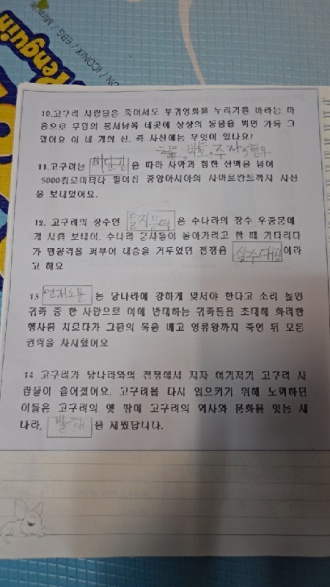 Penguin
10.고구려 사람들은 죽어서도 부귀영화를 누리기를 바라는 마
음으로 무덤의 동서남북 네곳에 상상의 동물을 벽면 가득 그
렸어요 이 네 개의 신, 즉 사신에는 무엇이 있나요?
11.고구려는 을 따라 사막과 험한 산맥을 넘어
5000킬로미터나 떨어진 중앙아시아의 사마르칸트까지 사신
을 보내었어요.
12. 고구려의 장수인 을지문덕 은 수나라의 장수 우중문에
게 시를 보내어, 수나라 군사들이 돌아가려고 할 때 기다리다
가 맹공격을 퍼부어 대승을 거두었던 전쟁을 살수대첩 이라
고 해요
13 연개소문 는 당나라에 강하게 맞서야 한다고 소리 높인
귀족 중 한 사람으로 이에 반대하는 귀족들을 초대해 화려한
행사를 치르다가 그들의 목을 베고 영류왕까지 죽인 뒤 모든
권력을 차지했어요
14 고구려가 당나라와의 전쟁에서 지자 여기저기 고구려 사
람들이 흩어졌어요. 고구려를 다시 일으키기 위해 노력하던
이들은 고구려의 옛 땅에 고구려의 역사와 문화를 잇는 새
나라, 발해 을 세웠답니다.